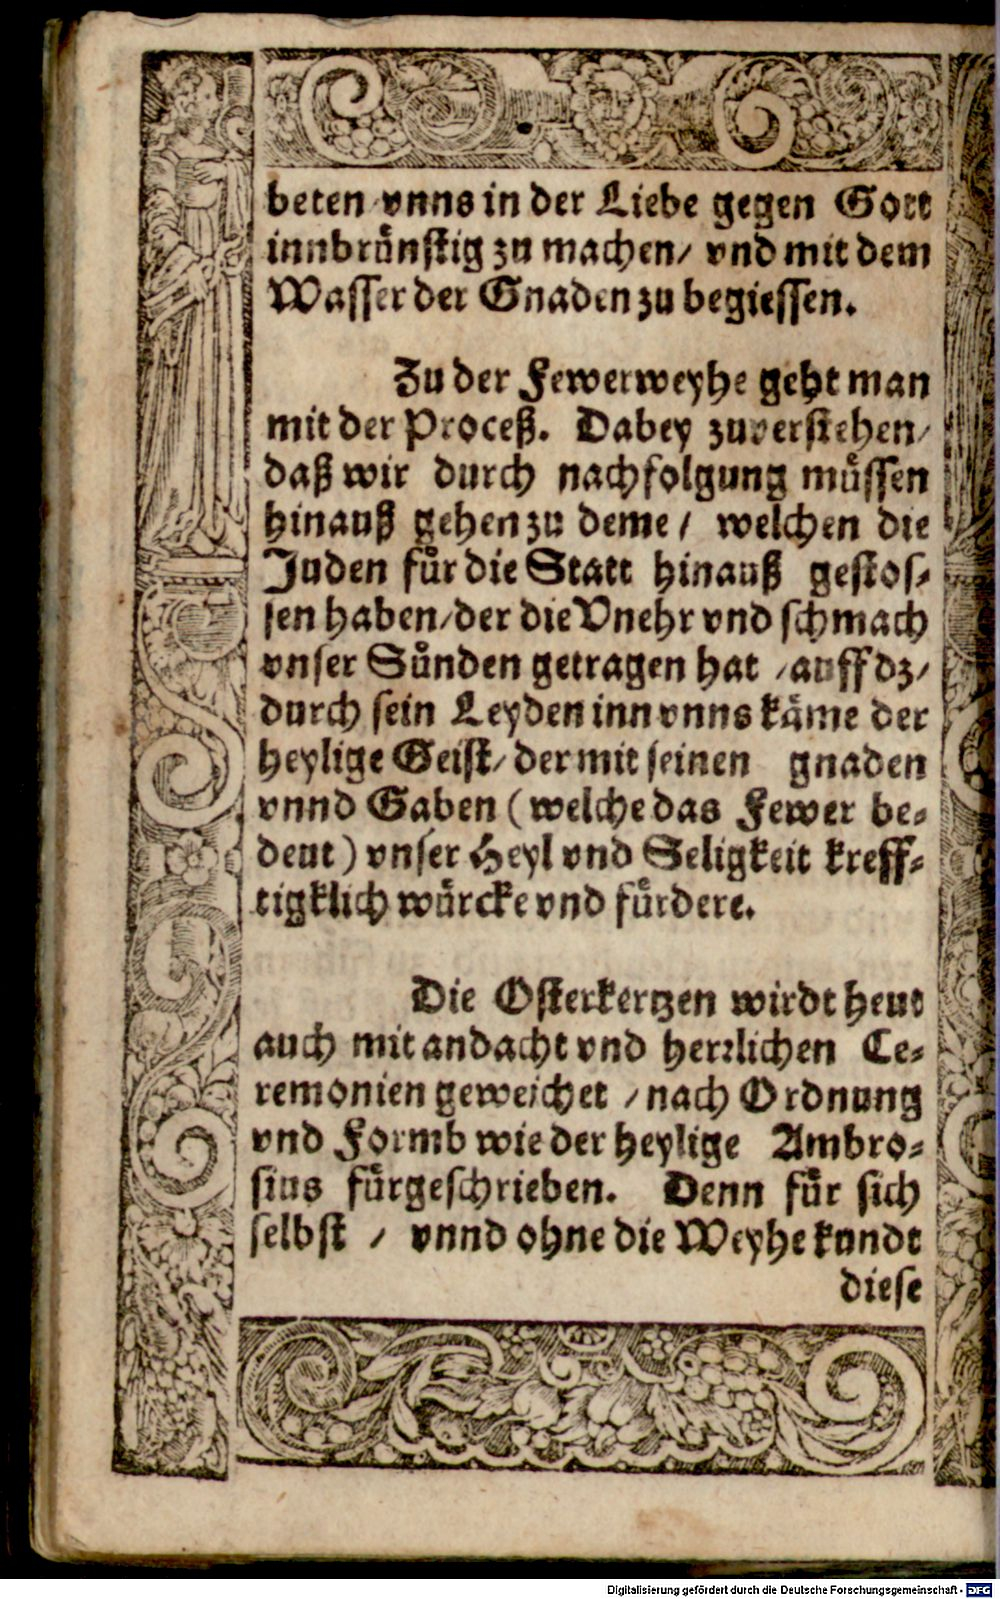 beten vnns in der Liebe gegen Gott
innbrünstig zu machen/ vnd mit dem
Wasser der Gnaden zu begiessen.
Zu der Fewerweyhe geht man
mit der Proceß. Dabey zuverstehen/
daß wir durch nachfolgung müssen
hinauß gehen zu deme / welchen die
Juden für die Statt hinauß gestos-
sen haben/ der die Vnehr vnd schmach
vnser Sünden getragen hat / auff dz/
durch sein Leyden inn vnns käme der
heylige Geist/ der mit seinen gnaden
vnnd Gaben (welche das Fewer be-
deut) vnser Heyl vnd Seligkeit kreff-
tigklich würcke vnd fürdere.
Die Osterkertzen wirdt heut
auch mit andacht vnd herrlichen Ce-
remonien geweichet / nach Ordnung
vnd Formb wie der heylige Ambro-
sius fürgeschrieben. Denn für sich
selbst / vnnd ohne die Weyhe kundt
diese
Digitalisierung gefördert durch die Deutsche Forschungsgemeinschaft - DFG